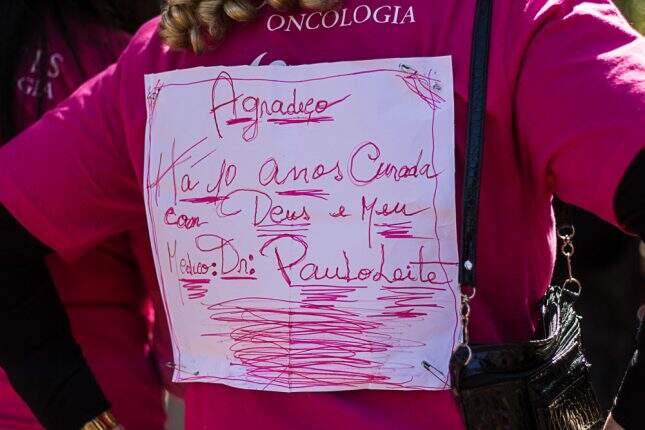 ONCOLOGIA
Agradeço
Há 10 anos Curada
com Deus e Meu
Medico: Dr: Paulo Leite